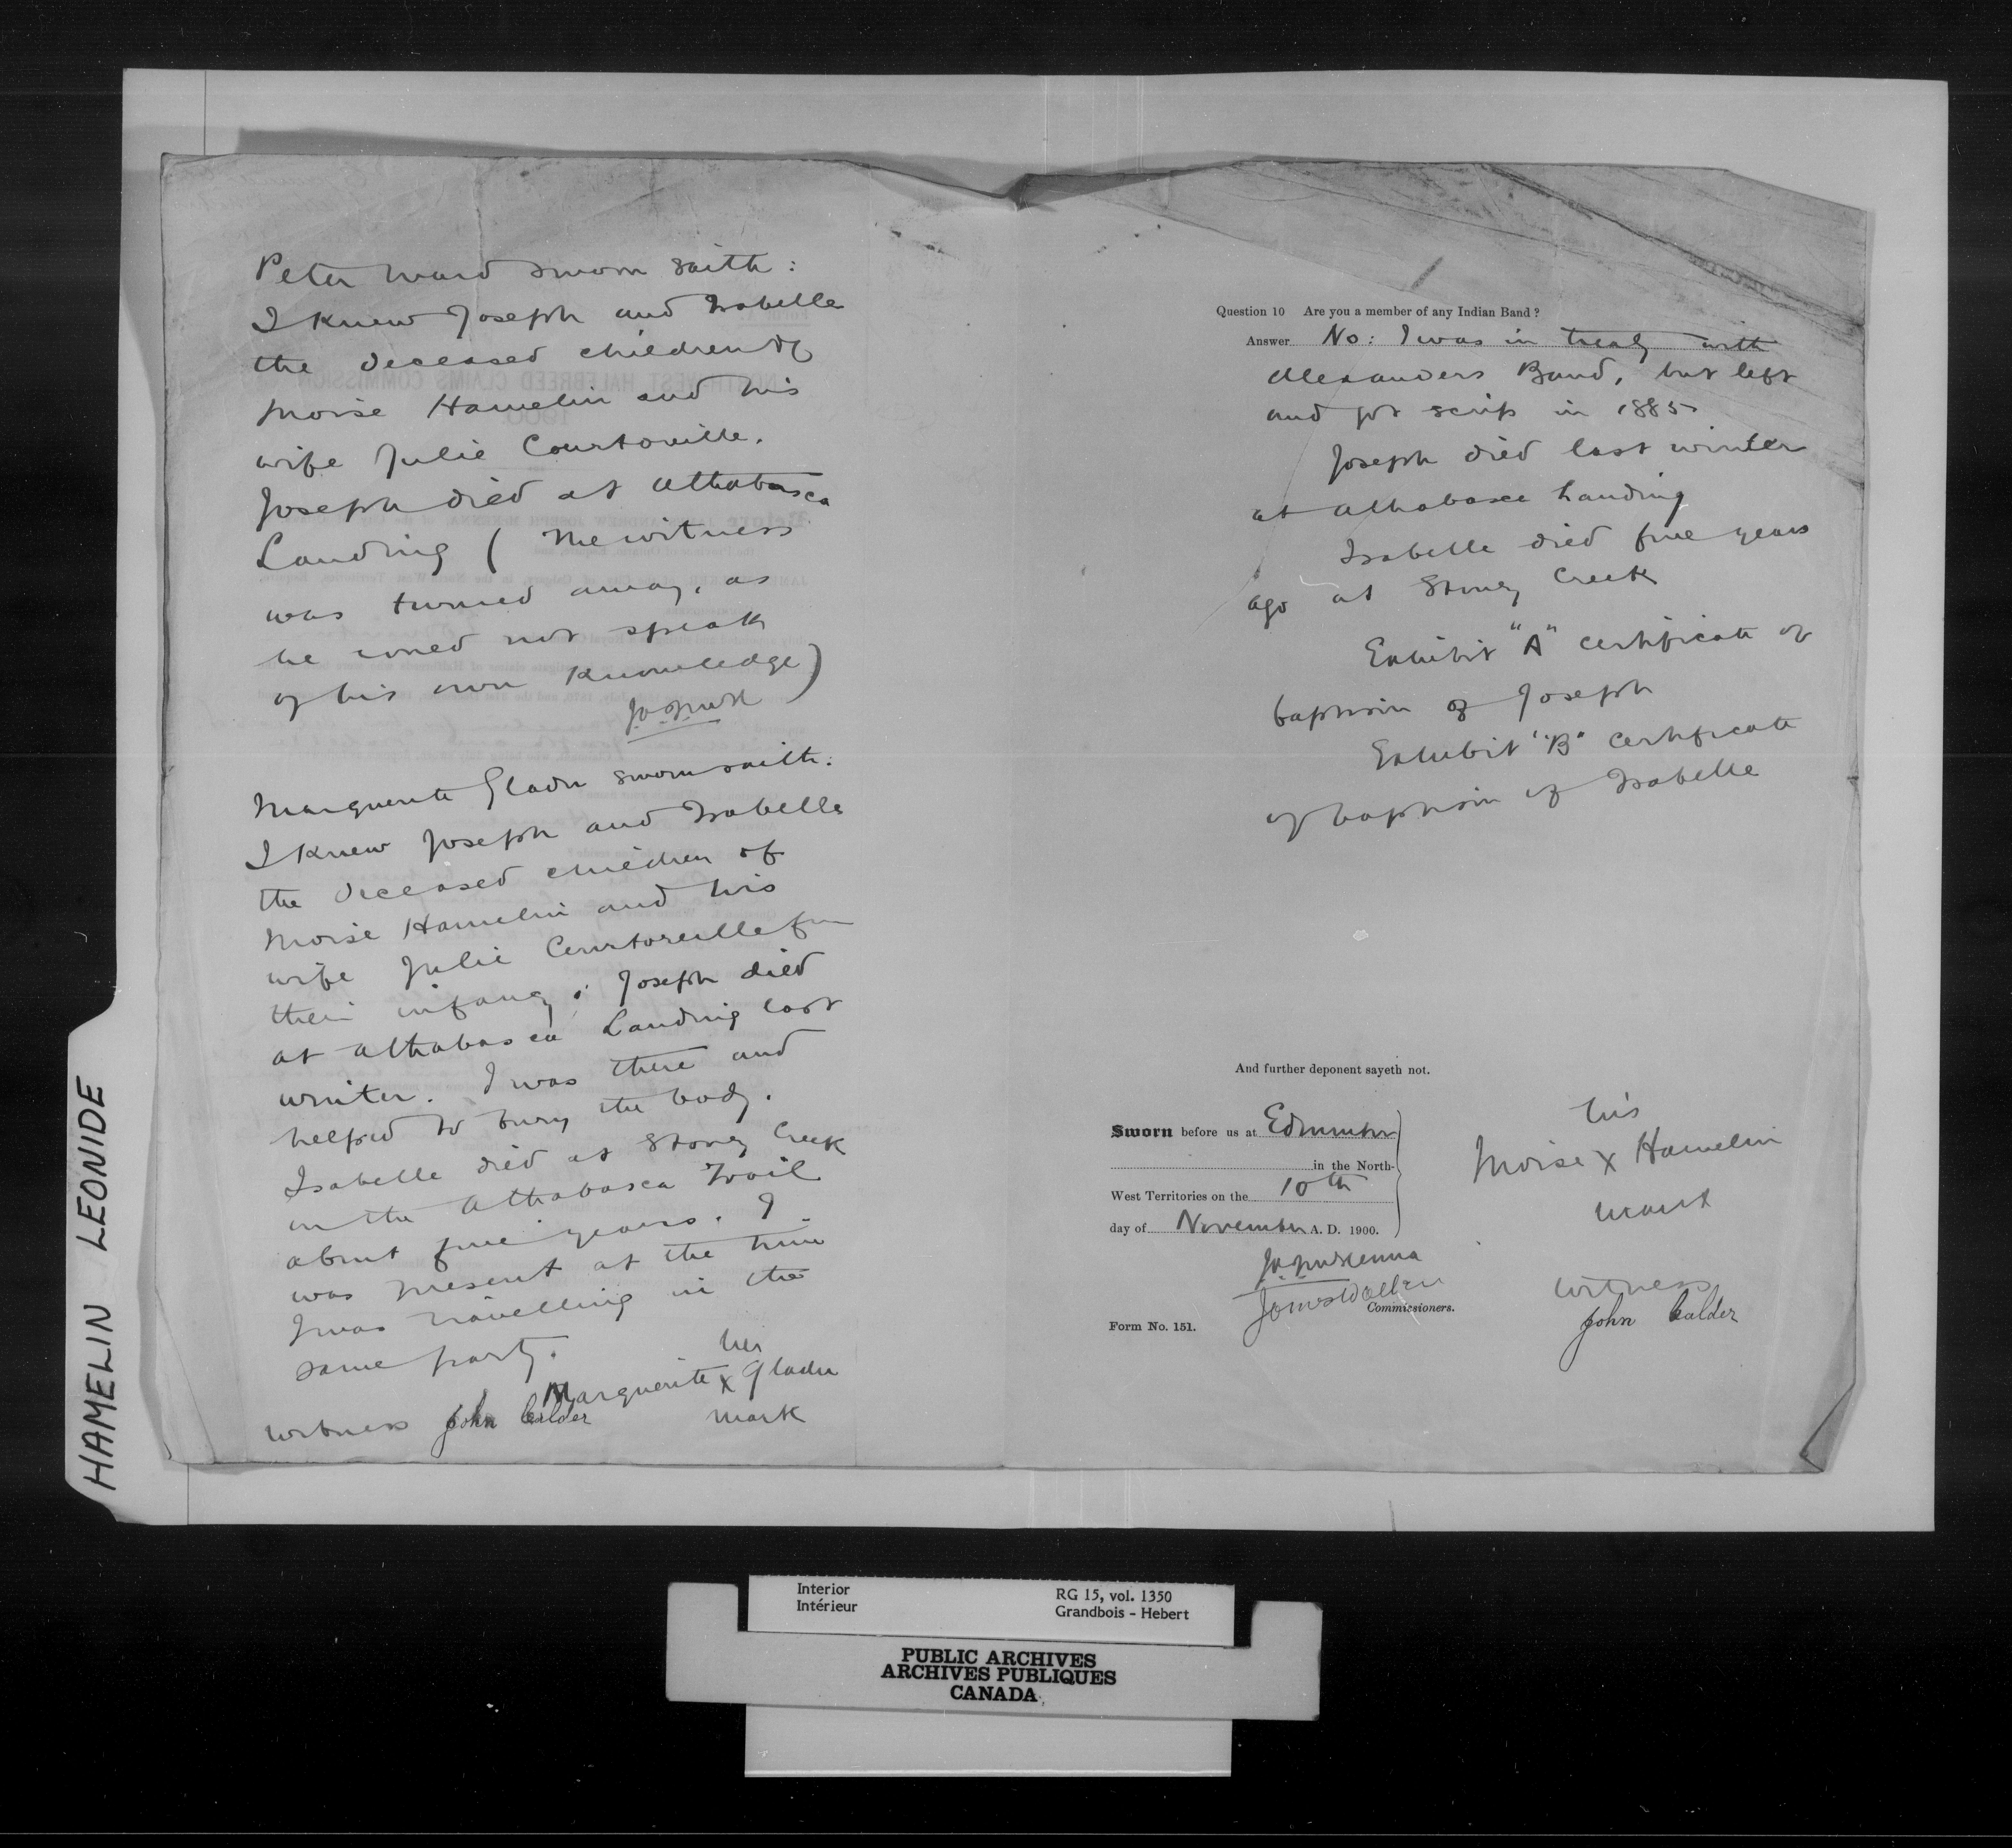 Peter Ward sworn saith :
I knew Joseph and Isabelle
the deceased children of
Moise Hamelin and his
wife Julie Courtoreille.
Joseph died at Athabasca
Landing ( The witness
was turned away, as
he could not speak
of his own knowledge )
Marguerite Gladu sworn saith :
I knew Joseph and Isabelle
the deceased children of
Moise Hamelin and his
wife Julie Courtoreille from
their infancy ; Joseph died
at Athabasca Landing last
winter. I was there and
helped to bury the body.
Isabelle died at Stoney Creek
on the Athabasca Trail
about five years. I
was present at the time
I was travelling in the
same party.
her
Marguerite x Gladu
mark
witness John Calder
Question 10 Are you a member of any Indian Band ?
Answer No : I was in treaty with
Alexanders Band, but left
and got scrip in 1885
Joseph died last winter
at Athabasca Landing
Isabelle died five years
ago at Stoney Creek
Exhibit "A" certificate of
baptism of Joseph
Exhibit "B" certificate
of baptism of Isabelle
And further deponent sayeth not.
Sworn before us at Edmonton
in the North-
West Territories on the 10th
day of November A. D. 1900.
his
Moise x Hamelin
mark
J.A.J. McKenna
James Walker
Commissioners.
witness
John Calder
Form No. 151.
HAMELIN LEONIDE
Interior
Intérieur
RG 15, vol. 1350
Grandbois - Hebert
PUBLIC ARCHIVES
ARCHIVES PUBLIQUES
CANADA